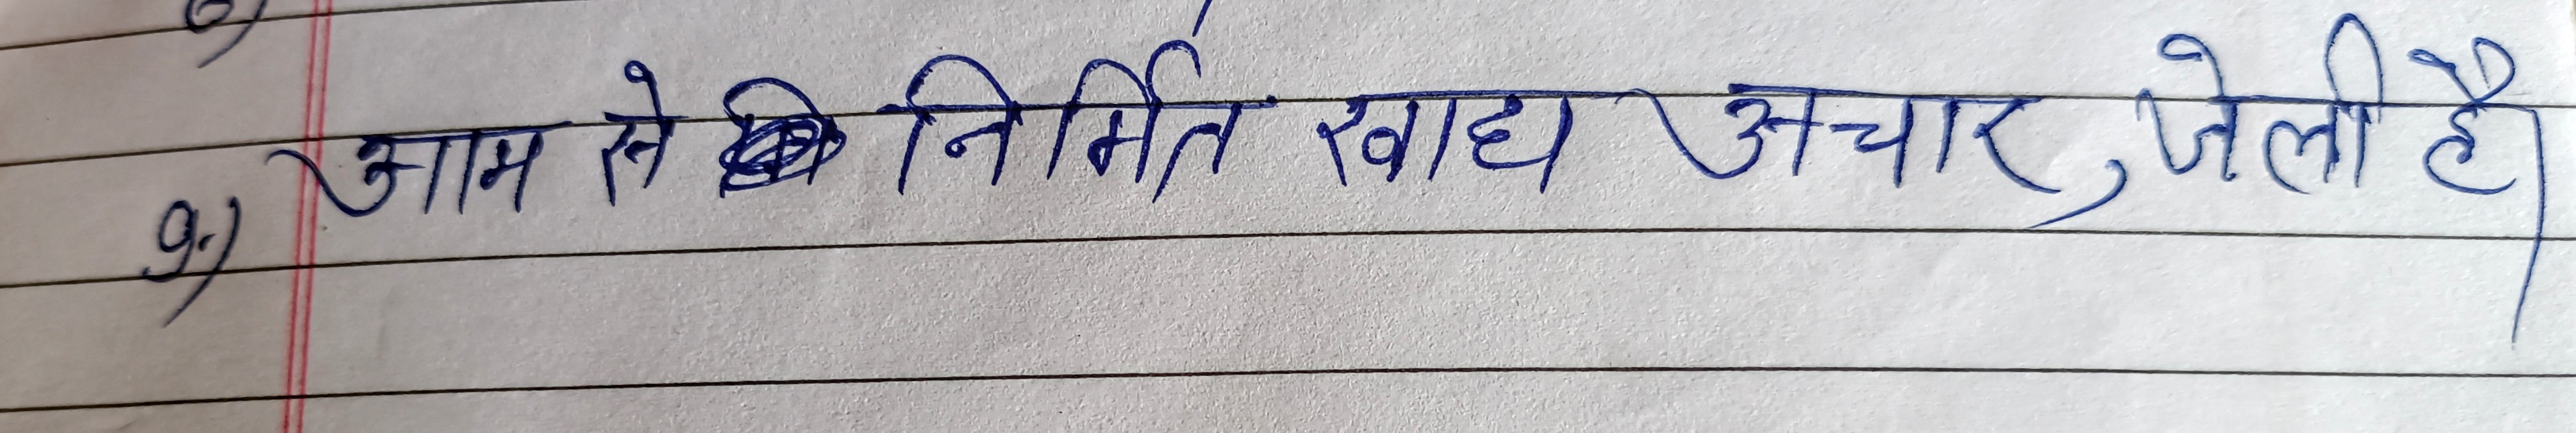 9.) आम से निर्मित खाद्य अचार, जेली है।